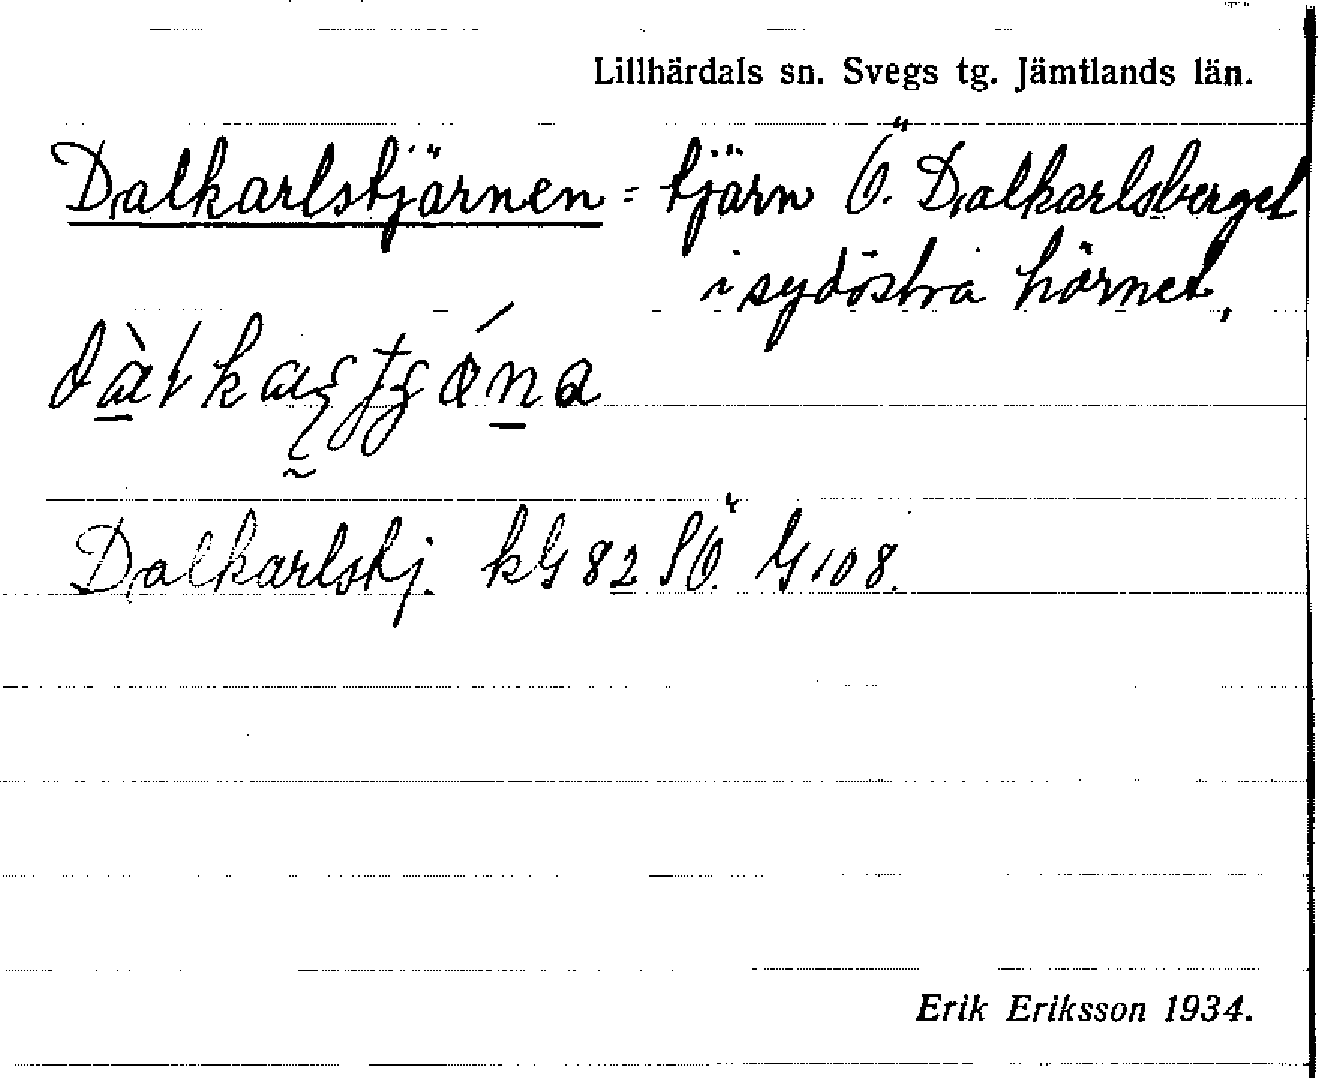 Lillhärdals sn. Svegs tg. Jämtlands län.
Dalkarlstjärnen = tjärn Ö. Dalkarlsberget
i sydöstra hörnet.
Dalkarlstj. kG 82 SÖ. G 108.
Erik Eriksson 1934.